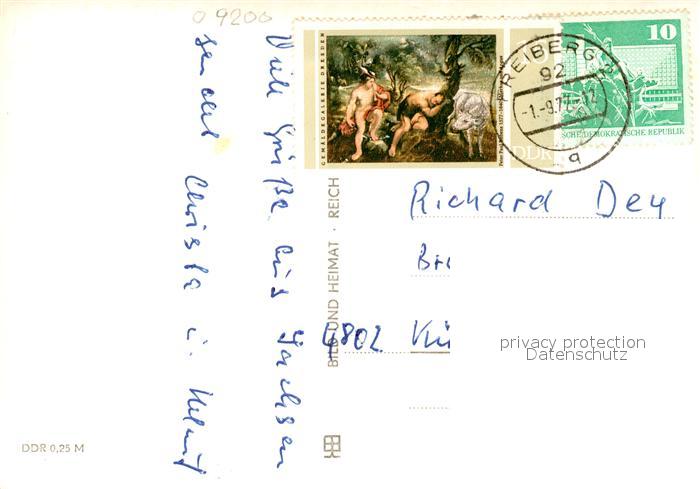 0 9200
Viele Grüße aus Sachsen
sendet Christa u. Helmut
GEMÄLDEGALERIE DRESDEN
Peter Paul Rubens 1577-
10
DDR
10
SCHE DEMOKRATISCHE REPUBLIK
FREIBERG 2
92
-1.-9.77-12
q
BILD UND HEIMAT · REICH
Richard Dey
4802 Kü
privacy protection
Datenschutz
DDR 0,25 M